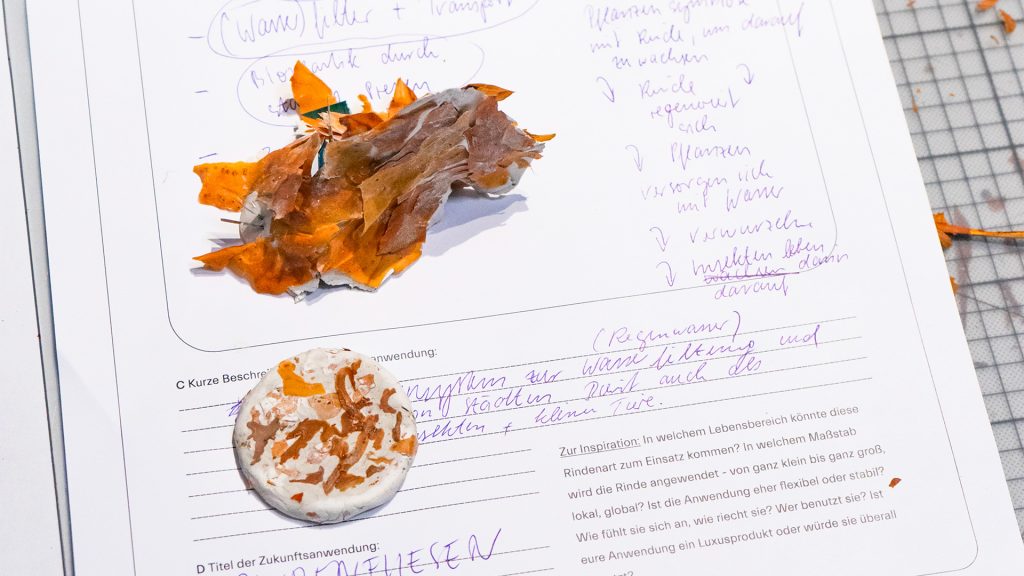 - (Wasser)filter + Transport
- Biomantik durch
Pressen
-
Pflanzen
mit Rinde, um darauf
zu wachsen
↓ Rinde ↓
regeneriert
sich
↓ Pflanzen
versorgen sich
mit Wasser
↓ verwurzeln
↓ Insekten leben
darin
darauf
C Kurze Beschre anwendung:
(Regenwasser)
zur Wasserfilterung und
Städten Dient auch des
sekten + kleine Tiere.
Zur Inspiration: In welchem Lebensbereich könnte diese
Rindenart zum Einsatz kommen? In welchem Maßstab
wird die Rinde angewendet - von ganz klein bis ganz groß,
lokal, global? Ist die Anwendung eher flexibel oder stabil?
Wie fühlt sie sich an, wie riecht sie? Wer benutzt sie? Ist
eure Anwendung ein Luxusprodukt oder würde sie überall
D Titel der Zukunftsanwendung: